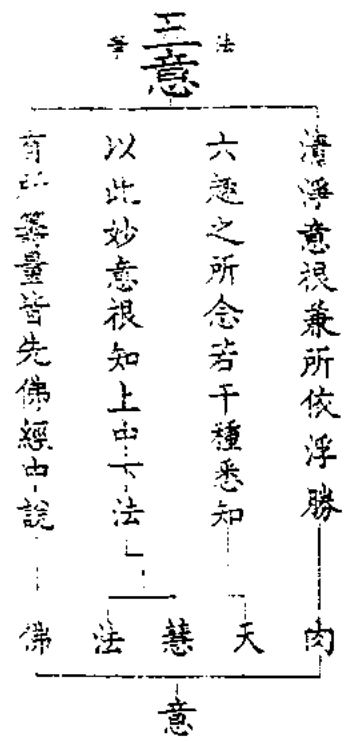 法
五意
等
清淨意根兼所依浮勝
六趣之所念若干種悉知
以此妙意根知上中下法
有所籌量皆先佛經中說
肉
天
慧
法
佛
意